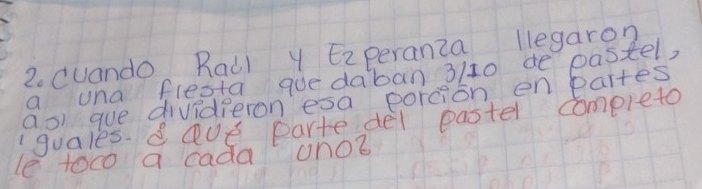 2. Cuando Raúl y Ezperanza llegaron
a una fiesta quedaban 3/10 de pastel,
asi que dividieron esa porción en partes
iguales. ¿ qué parte del pastel completo
le toco a cada uno?